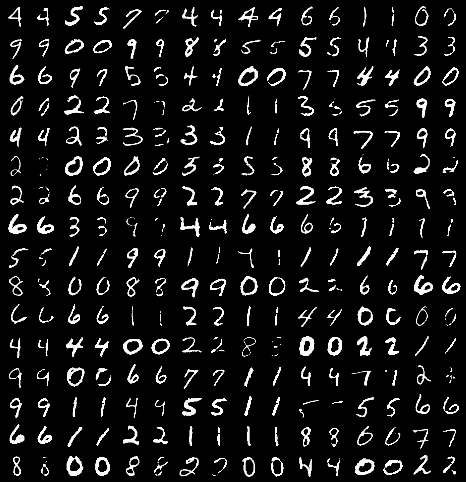 4 4 5 5 7 7 4 4 4 4 6 6 1 1 0 0
9 9 0 0 9 9 8 8 5 5 5 5 4 4 3 3
6 6 9 9 5 5 4 4 0 0 7 7 4 4 0 0
0 0 2 2 7 7 2 2 1 1 3 5 5 9 9
4 4 2 2 3 3 3 3 1 1 9 9 7 7 9 9
2 0 0 0 0 5 5 5 5 8 8 6 6 2 2
2 2 6 6 9 9 2 2 7 7 2 2 3 3 9 9
6 6 3 3 9 4 4 6 6 6 6 1 1 1 1
5 5 1 1 9 9 1 1 1 1 1 1 1 7 7
8 8 0 0 8 8 9 9 0 0 2 2 6 6 6 6
6 6 6 6 1 1 2 2 1 1 4 4 0 0 0 0
4 4 4 4 0 0 2 2 8 0 0 2 2 1 1
9 9 0 0 6 6 7 7 1 1 4 4 7 1 2
9 9 1 1 4 4 5 5 1 1 5 5 5 6 6
6 6 1 1 2 2 1 1 1 1 8 8 6 0 7 7
8 8 0 0 8 8 2 2 0 0 4 4 0 0 2 2